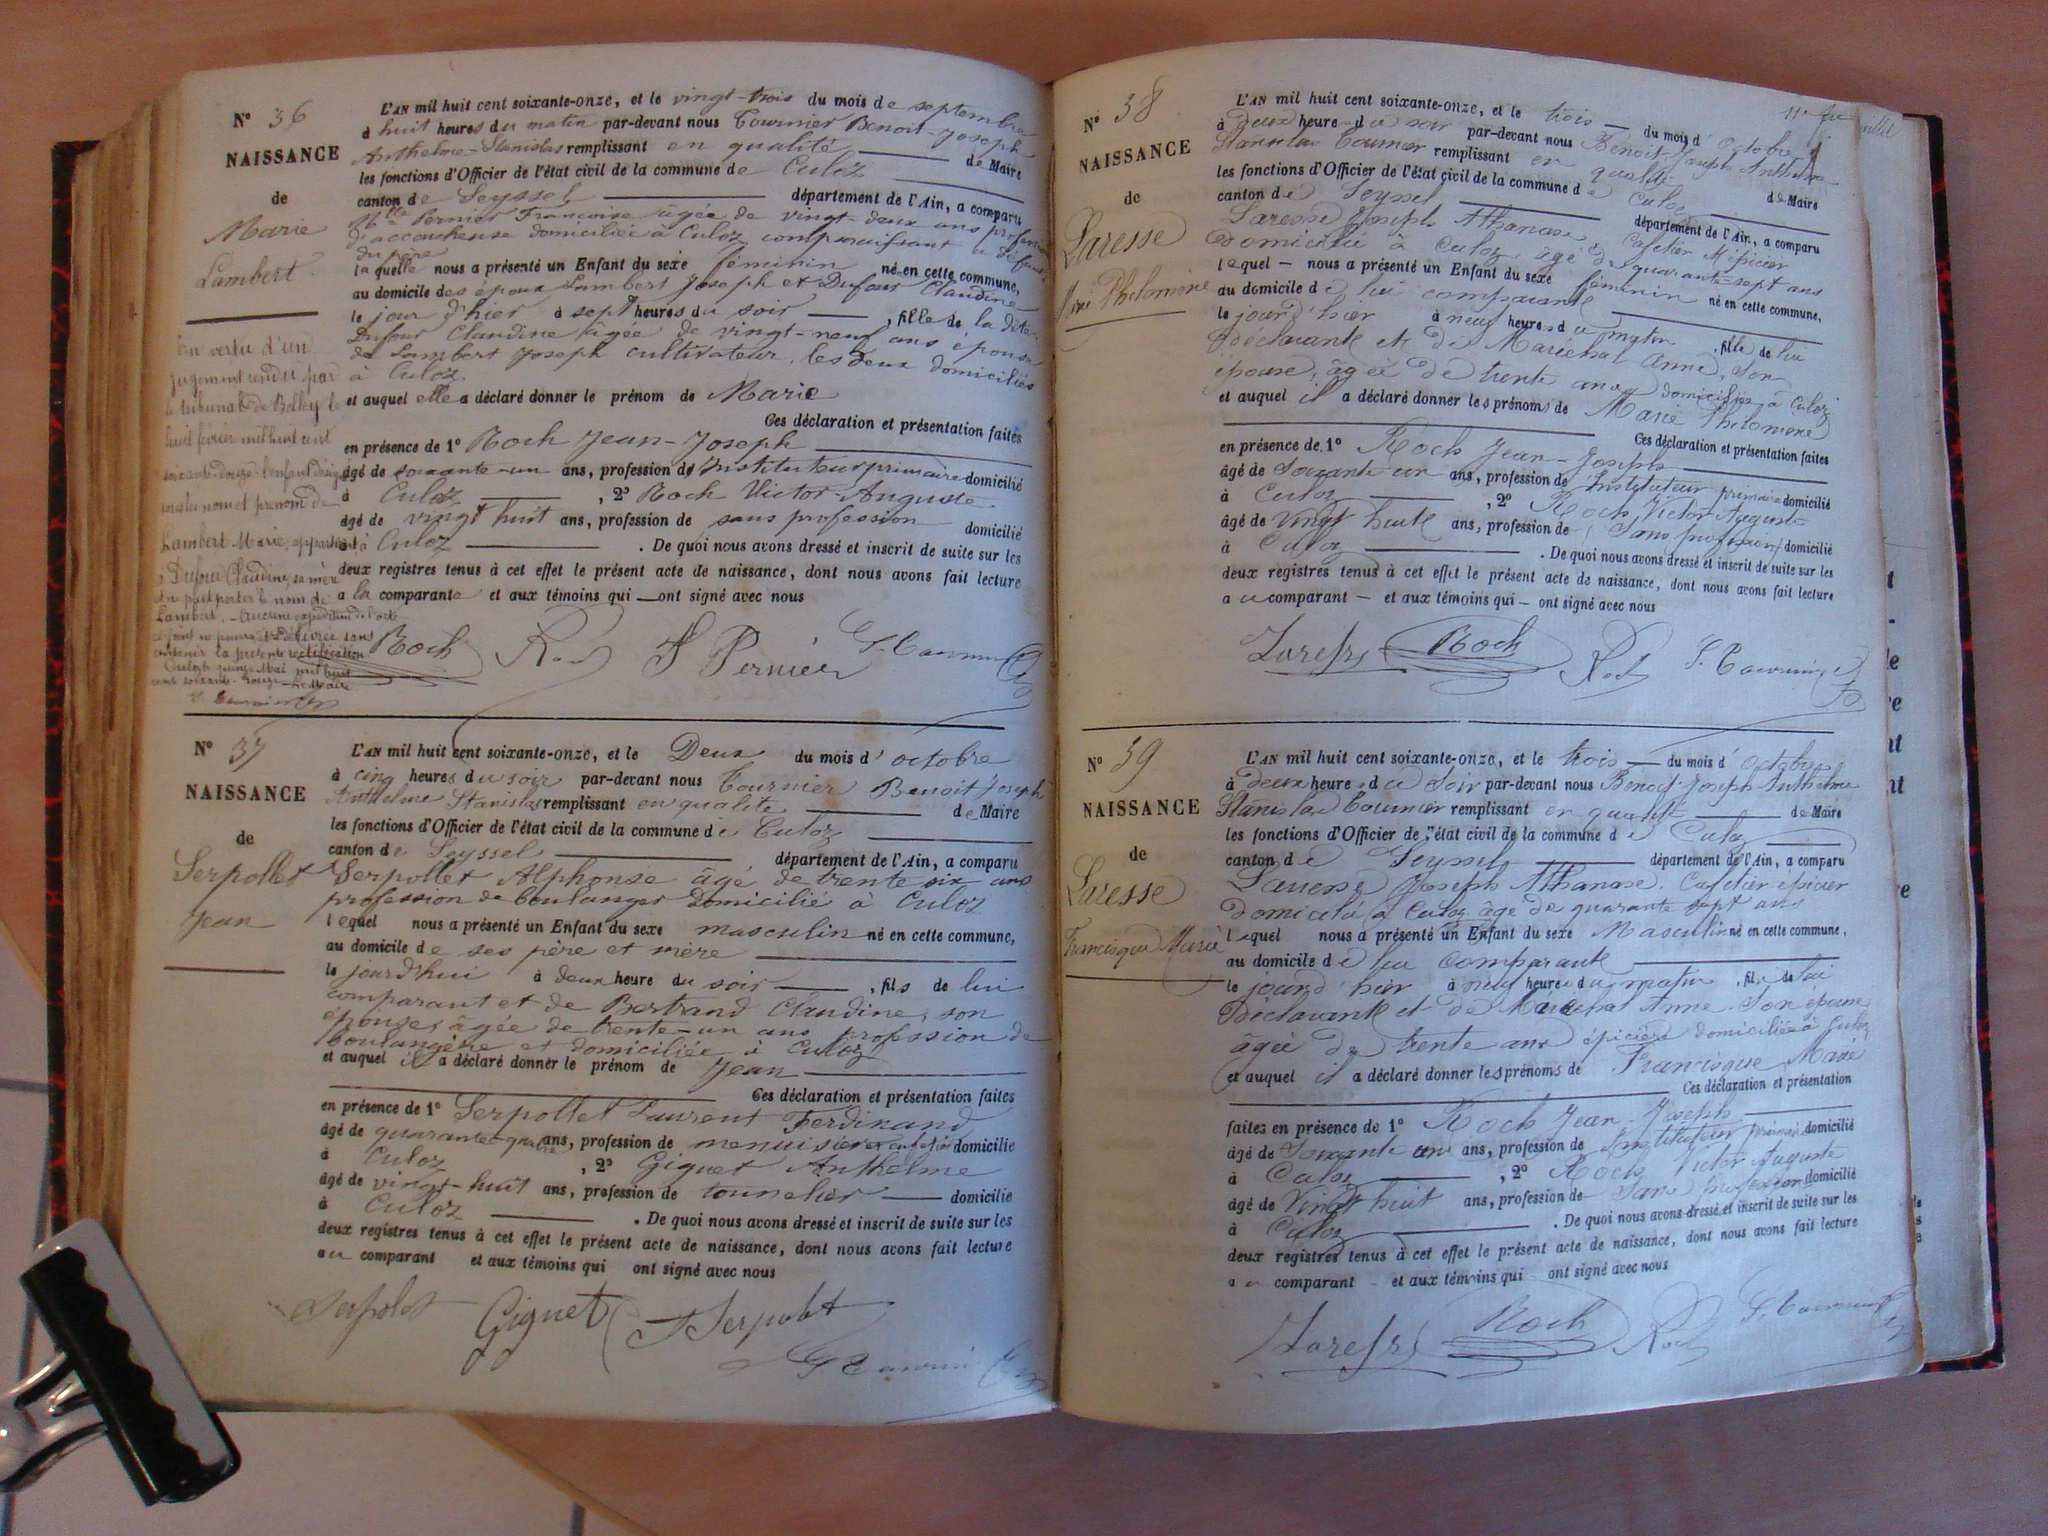 N° 36
NAISSANCE
de
Marie
Lambert
En vertu d'un
jugement rendu par
le tribunal de Belley le
huit février mil huit cent
soixante-douze l'enfant désigné
sous les nom et prénom de
Lambert Marie, appartient
à Dufour Claudine, sa mère
et ne peut porter le nom de
Lambert. - Aucune expédition de l'acte
ci-joint ne pourra être délivrée sans
contenir la présente rectification
Culoz le quinze Mai mil huit
cent soixante-douze Le Maire
L'AN mil huit cent soixante-onze, et le vingt-trois du mois de septembre
à huit heures du matin par-devant nous Tournier Benoit-Joseph
Anthelme-Stanislas remplissant en qualité de Maire
les fonctions d'Officier de l'état civil de la commune de Culoz
canton de Seyssel département de l'Ain, a comparu
Pernier Françoise âgée de vingt-deux ans profession
d'accoucheuse domiciliée à Culoz comparaissant à défaut
du père
laquelle nous a présenté un Enfant du sexe féminin né en cette commune,
au domicile des époux Lambert Joseph et Dufour Claudine
le jour d'hier à sept heures du soir , fille de la dite
Dufour Claudine âgée de vingt-neuf ans épouse
de Lambert Joseph cultivateur, les deux domiciliés
à Culoz
et auquel elle a déclaré donner le prénom de Marie
Ces déclaration et présentation faites
en présence de 1° Roch Jean-Joseph
âgé de soixante-un ans, profession d'Instituteur primaire domicilié
à Culoz , 2° Roch Victor-Auguste
âgé de vingt huit ans, profession de sans profession domicilié
à Culoz . De quoi nous avons dressé et inscrit de suite sur les
deux registres tenus à cet effet le présent acte de naissance, dont nous avons fait lecture
a la comparante et aux témoins qui ont signé avec nous
Roch Roch F Pernier S. Tournier
N° 37
NAISSANCE
de
Serpollet
Jean
L'AN mil huit cent soixante-onze, et le Deux du mois d'octobre
à cinq heures du soir par-devant nous Tournier Benoit Joseph
Anthelme Stanislas remplissant en qualité de Maire
les fonctions d'Officier de l'état civil de la commune de Culoz
canton de Seyssel département de l'Ain, a comparu
Serpollet Alphonse âgé de trente six ans
profession de boulanger domicilié à Culoz
lequel nous a présenté un Enfant du sexe masculin né en cette commune,
au domicile de ses père et mère
le jourd'hui à deux heure du soir , fils de lui
comparant et de Bertrand Claudine, son
épouse, âgée de trente-un ans profession de
boulangère et domiciliée à Culoz
et auquel il a déclaré donner le prénom de Jean
Ces déclaration et présentation faites
en présence de 1° Serpollet Laurent Ferdinand
âgé de quarante-quatre ans, profession de menuisier domicilié
à Culoz , 2° Giguet Anthelme
âgé de vingt-huit ans, profession de tonnelier domicilié
à Culoz . De quoi nous avons dressé et inscrit de suite sur les
deux registres tenus à cet effet le présent acte de naissance, dont nous avons fait lecture
au comparant et aux témoins qui ont signé avec nous
Serpolet Giguet Serpolet
S Tournier
N° 38
NAISSANCE
de
Laresse
Marie Philomène
L'AN mil huit cent soixante-onze, et le trois du mois d'Octobre
à deux heure du soir par-devant nous Benoit-Joseph Anthelme
Stanislas Tournier remplissant en qualité de Maire
les fonctions d'Officier de l'état civil de la commune de Culoz
canton de Seyssel département de l'Ain, a comparu
Laresse Joseph Athanase Cafetier épicier
domicilié à Culoz, âgé de quarante-sept ans
lequel - nous a présenté un Enfant du sexe féminin né en cette commune,
au domicile de lui comparante
le jourd'hier à neuf heures du matin , fille de lui
déclarante et de Maréchal Anne, son
épouse, âgée de trente ans domiciliée à Culoz
et auquel il a déclaré donner les prénoms de Marie Philomène
Ces déclaration et présentation faites
en présence de 1° Roch Jean-Joseph
âgé de Soixante-un ans, profession d'Instituteur primaire domicilié
à Culoz , 2° Roch Victor Auguste
âgé de Vingt huit ans, profession de Sans profession domicilié
à Culoz . De quoi nous avons dressé et inscrit de suite sur les
deux registres tenus à cet effet le présent acte de naissance, dont nous avons fait lecture
au comparant - et aux témoins qui - ont signé avec nous
Laresse Roch Roch S. Tournier
N° 39
NAISSANCE
de
Laresse
Francisque Marie
L'AN mil huit cent soixante-onze, et le trois du mois d'octobre
à deux heure du Soir par-devant nous Benoit Joseph Anthelme
Stanislas Tournier remplissant en qualité de Maire
les fonctions d'Officier de l'état civil de la commune de Culoz
canton de Seyssel département de l'Ain, a comparu
Laresse Joseph Athanase. Cafetier épicier
domicilié à Culoz âgé de quarante sept ans
lequel nous a présenté un Enfant du sexe Masculin né en cette commune,
au domicile de lui Comparante
le jourd'hier à neuf heures du matin , fils de lui
Déclarante et de Maréchal Anne Son épouse
âgée de trente ans épicière domiciliée à Culoz
et auquel il a déclaré donner les prénoms de Francisque Marie
Ces déclaration et présentation
faites en présence de 1° Roch Jean-Joseph
âgé de Soixante un ans, profession d'Instituteur primaire domicilié
à Culoz , 2° Roch Victor Auguste
âgé de Vingt huit ans, profession de Sans profession domicilié
à Culoz . De quoi nous avons dressé et inscrit de suite sur les
deux registres tenus à cet effet le présent acte de naissance, dont nous avons fait lecture
au comparant - et aux témoins qui ont signé avec nous
Laresse Roch Roch S. Tournier